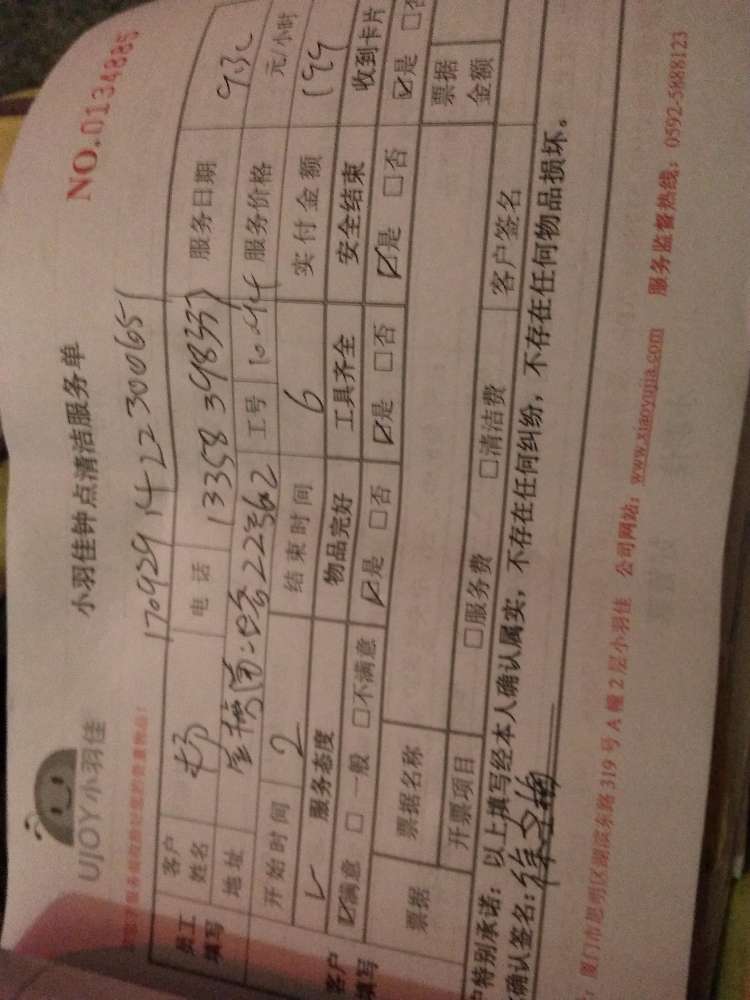 UJOY小羽佳
小羽佳钟点清洁服务单
NO.0134885
170929142230065
员工填写 客户姓名 杨 电话 13358398337 服务日期 9.30
地址 22362 工号 1044 服务价格 元/小时
开始时间 2 结束时间 6 实付金额 199
客户填写 服务态度 物品完好 工具齐全 安全结束 收到卡片
☑满意 □一般 □不满意 ☑是 □否 ☑是 □否 ☑是 □否 ☑是 □否
票据 票据名称 票据金额
开票项目 □服务费 □清洁费 客户签名
户特别承诺：以上填写经本人确认属实，不存在任何纠纷，不存在任何物品损坏。
确认签名：
厦门市思明区湖滨东路319号A幢2层小羽佳 公司网站：www.xiaoyujia.com 服务监督热线：0592-5888123